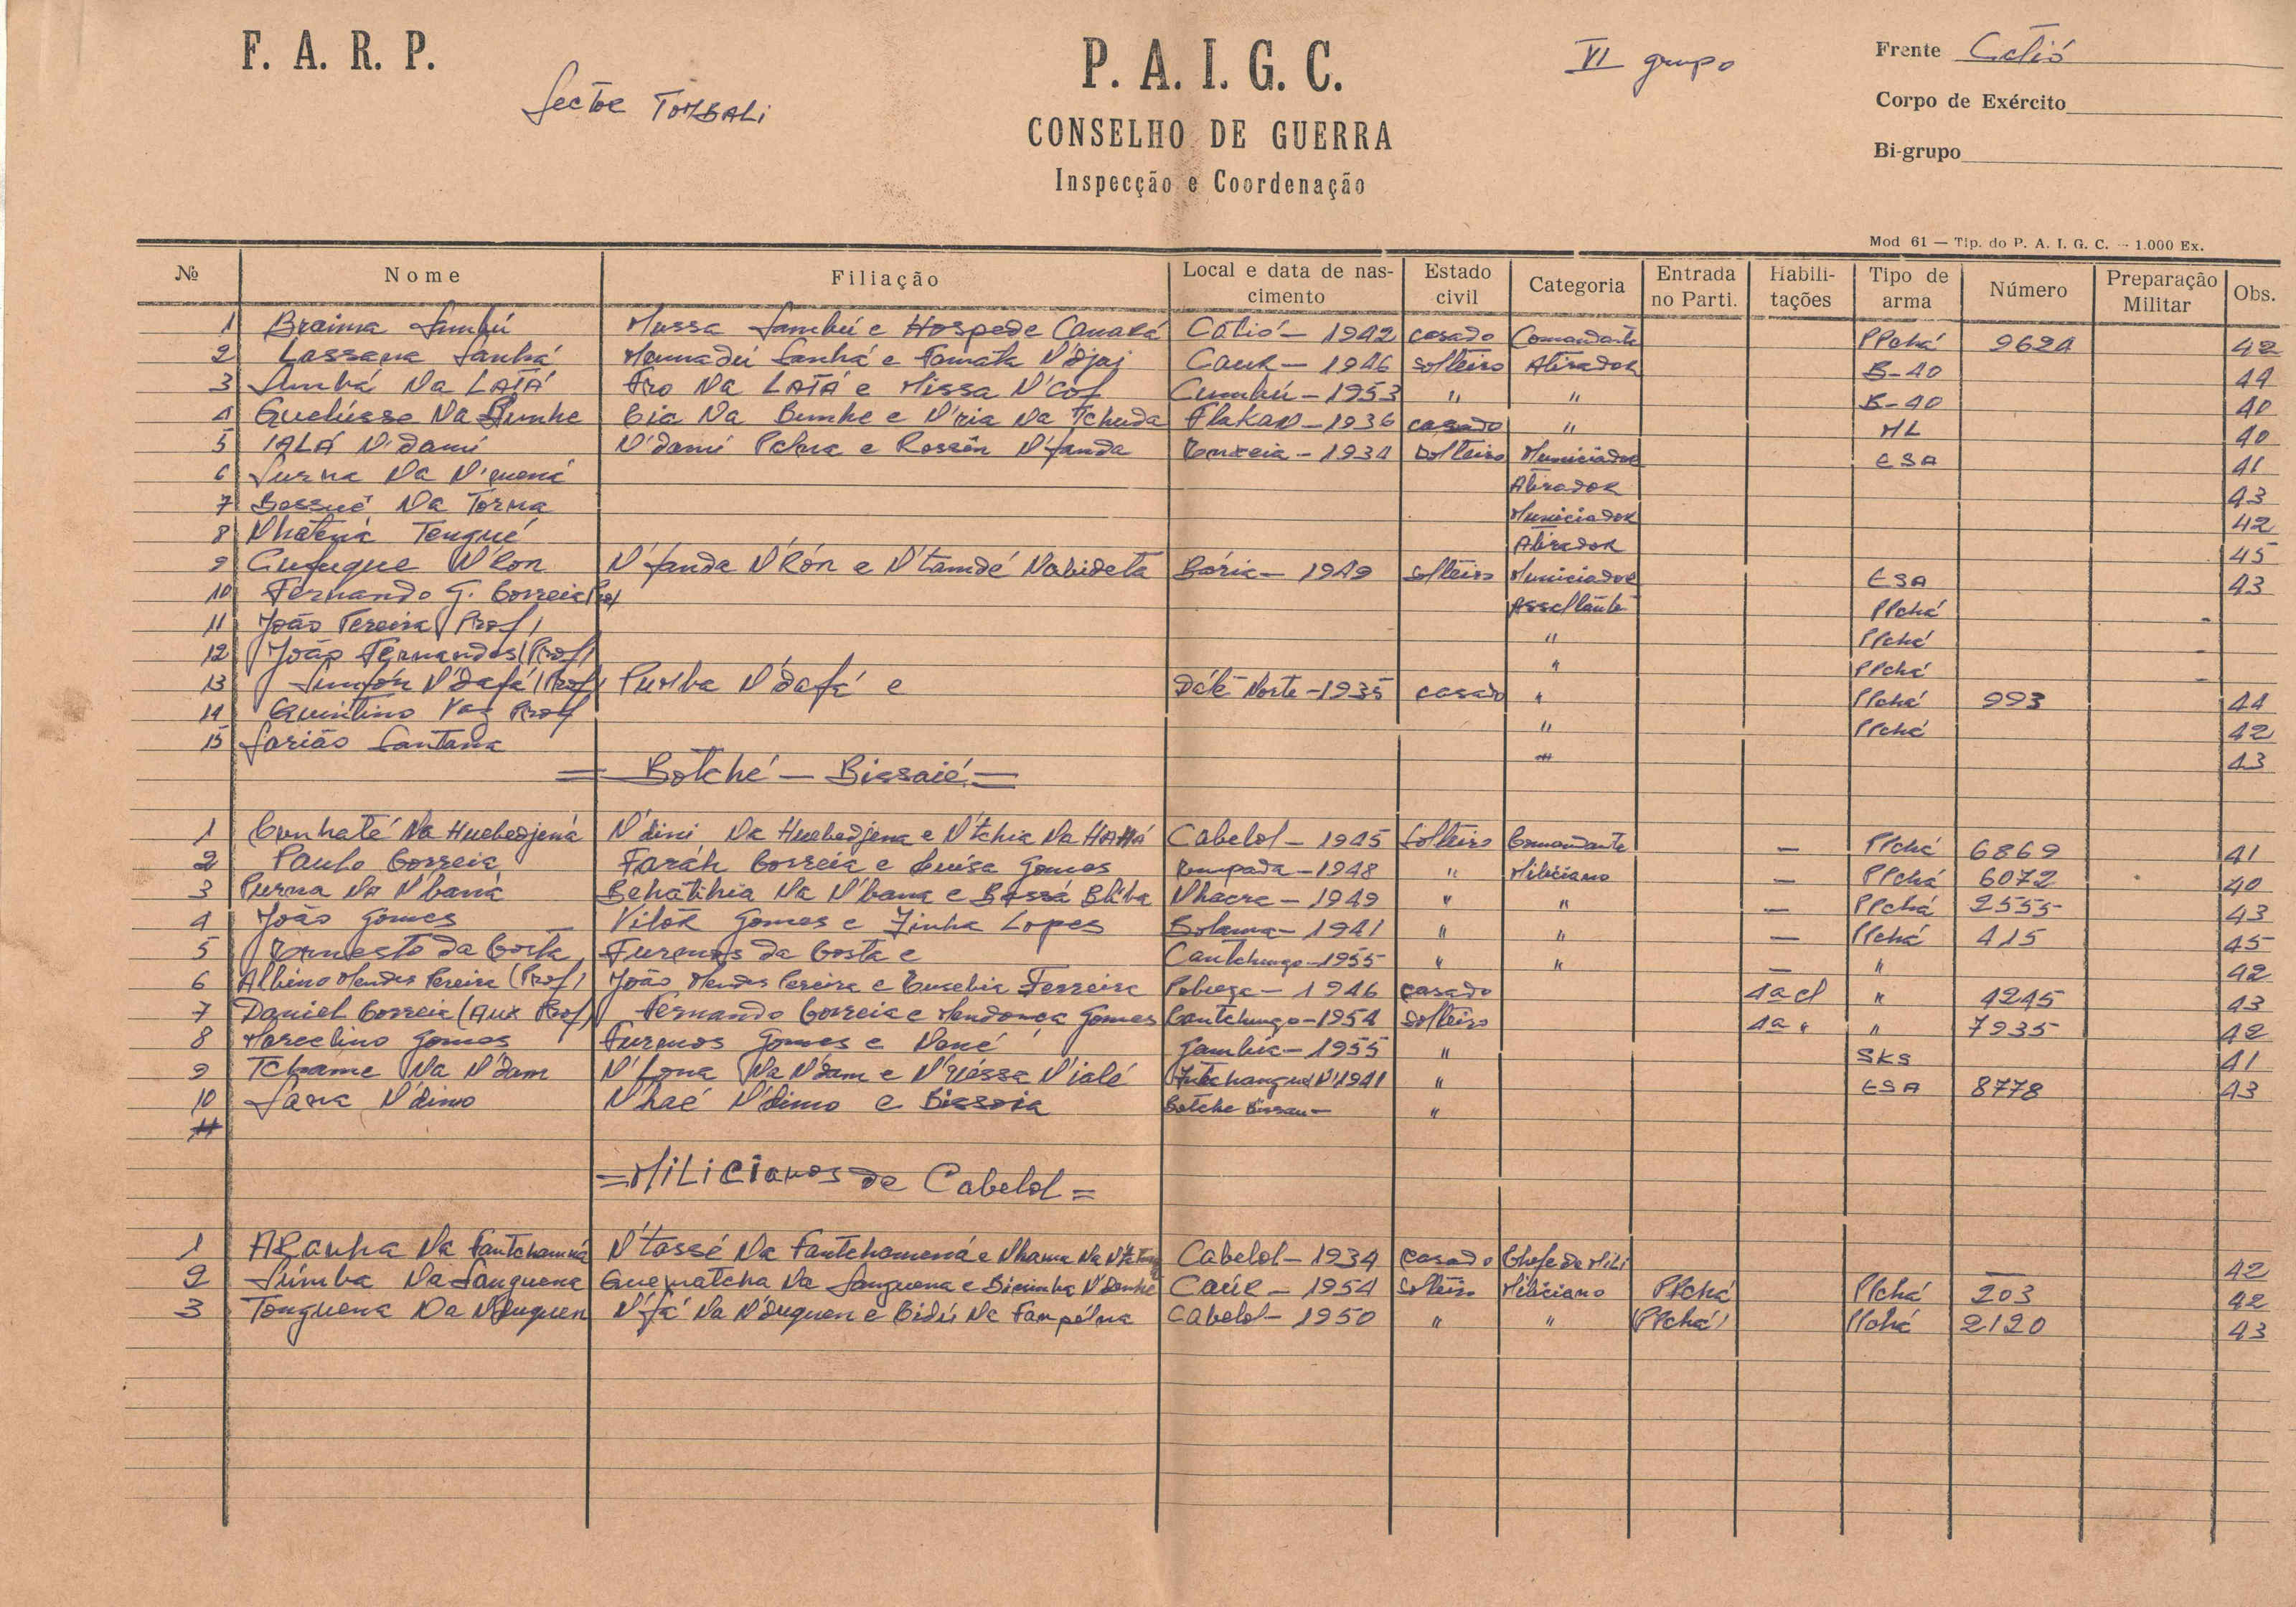 F. A. R. P.
Sector TOMBALi
P. A. I. G. C.
CONSELHO DE GUERRA
Inspecção e Coordenação
VI grupo
Frente Catió
Corpo de Exército
Bi-grupo
Mod 61 — Tip. do P. A. I. G. C. — 1.000 Ex.
№ Nome Filiação Local e data de nascimento Estado civil Categoria Entrada no Parti. Habilitações Tipo de arma Número Preparação Militar Obs.
1 Braima Sambú Mussa Sambú e Hospede Camará Catió — 1942 casado Comandante PPchá 9624 42
2 Lassana Sanhá Mamadú Sanhá e Famata N'djai Caur — 1946 solteiro Atirador B-40 44
3 Sumbá Na LATÁ Fro Na LATÁ e Missa N'Cof Cumbú — 1953 " " B-40 40
4 Guelússe Na Bunhe Bia Na Bunhe e N'ria Na Tchuda Flakan — 1936 casado " ML 40
5 IALÁ N'dami N'dami Pchna e N'fanda — 1934 solteiro Municiador ESA 41
6 Surna Na N'quená Atirador 43
7 Bessué Na Torna Municiador 42
8 Nhatená Tengué Atirador 45
9 Cufuque N'Ron N'fanda N'Rón e N'tamdé Nabideta Bária — 1949 solteiro Municiador ESA 43
10 Fernando G. Correia (Prof) Assaltante PPchá
11 João Pereira (Prof) " PPchá -
12 João Fernandes (Prof) " PPchá -
13 Sunfón N'dafá (Prof) Purba N'dafá e Dáté Norte — 1935 casado " PPchá 993 44
14 Quintino Vaz Prof " PPchá 42
15 Sarião Santana " 43
= Botché — Bissaié =
1 Cunhaté Na Huebedjená N'dini Na Huebedjena e N'tchia Na HAMÁ Cabelol — 1945 Solteiro Comandante — PPchá 6869 41
2 Paulo Correia Faráh Correia e Luísa Gomes Rompada — 1948 " Miliciano — PPchá 6072 40
3 Purna Na N'baná Behatihia Na N'bana e Bassá Bliba Nhacra — 1949 " " — PPchá 2555 43
4 João Gomes Vitôr Gomes e Zinha Lopes Bolama — 1941 " " — PPchá 415 45
5 Ernesto da Costa Furmos da Costa e Cantchungo — 1955 " " — " 42
6 Albino Mendes Pereira (Prof) João Mendes Pereira e Eusebia Ferreira — 1946 casado 4a cl " 4245 43
7 Daniel Correia (Aux Prof) Fernando Correia e Mendonça Gomes Cantchungo — 1954 solteiro 4a " " 7935 42
8 Marcelino Gomes Furmos Gomes e Nené Gambia — 1955 " SKS 41
9 Tchame Na N'dam N'Lona Na N'dam e N'ialé 1941 " ESA 8778 43
10 Sana N'dimo Nhaé N'dimo e Bissoia Botche Bissau — "
11
= MiLiCianos de Cabelol =
1 ARanha Na Fantchamná N'tossé Na Fantchamená e Nhama Na Cabelol — 1934 casado Chefe da Mili — 42
2 Súmba Na Sanguena Guematcha Na Sanguena e Bicimba Caúr — 1954 solteiro Miliciano PPchá PPchá 203 42
3 Tonguena Da N'duguen N'fá Na N'duguen e Bidú Na Fampélna Cabelol — 1950 " " PPchá PPchá 2120 43